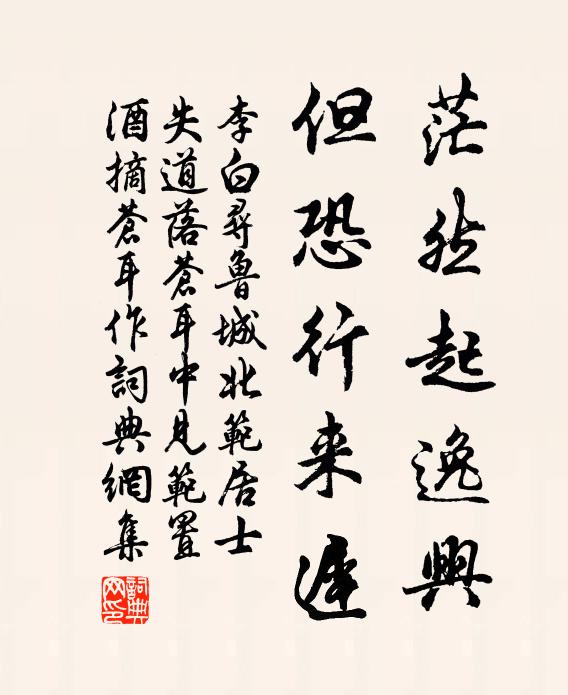 茫然起逸興
但恐行来遲
李白尋魯城北範居士
失道落蒼耳中見範置
酒摘蒼耳作詞典網集
詞典網印